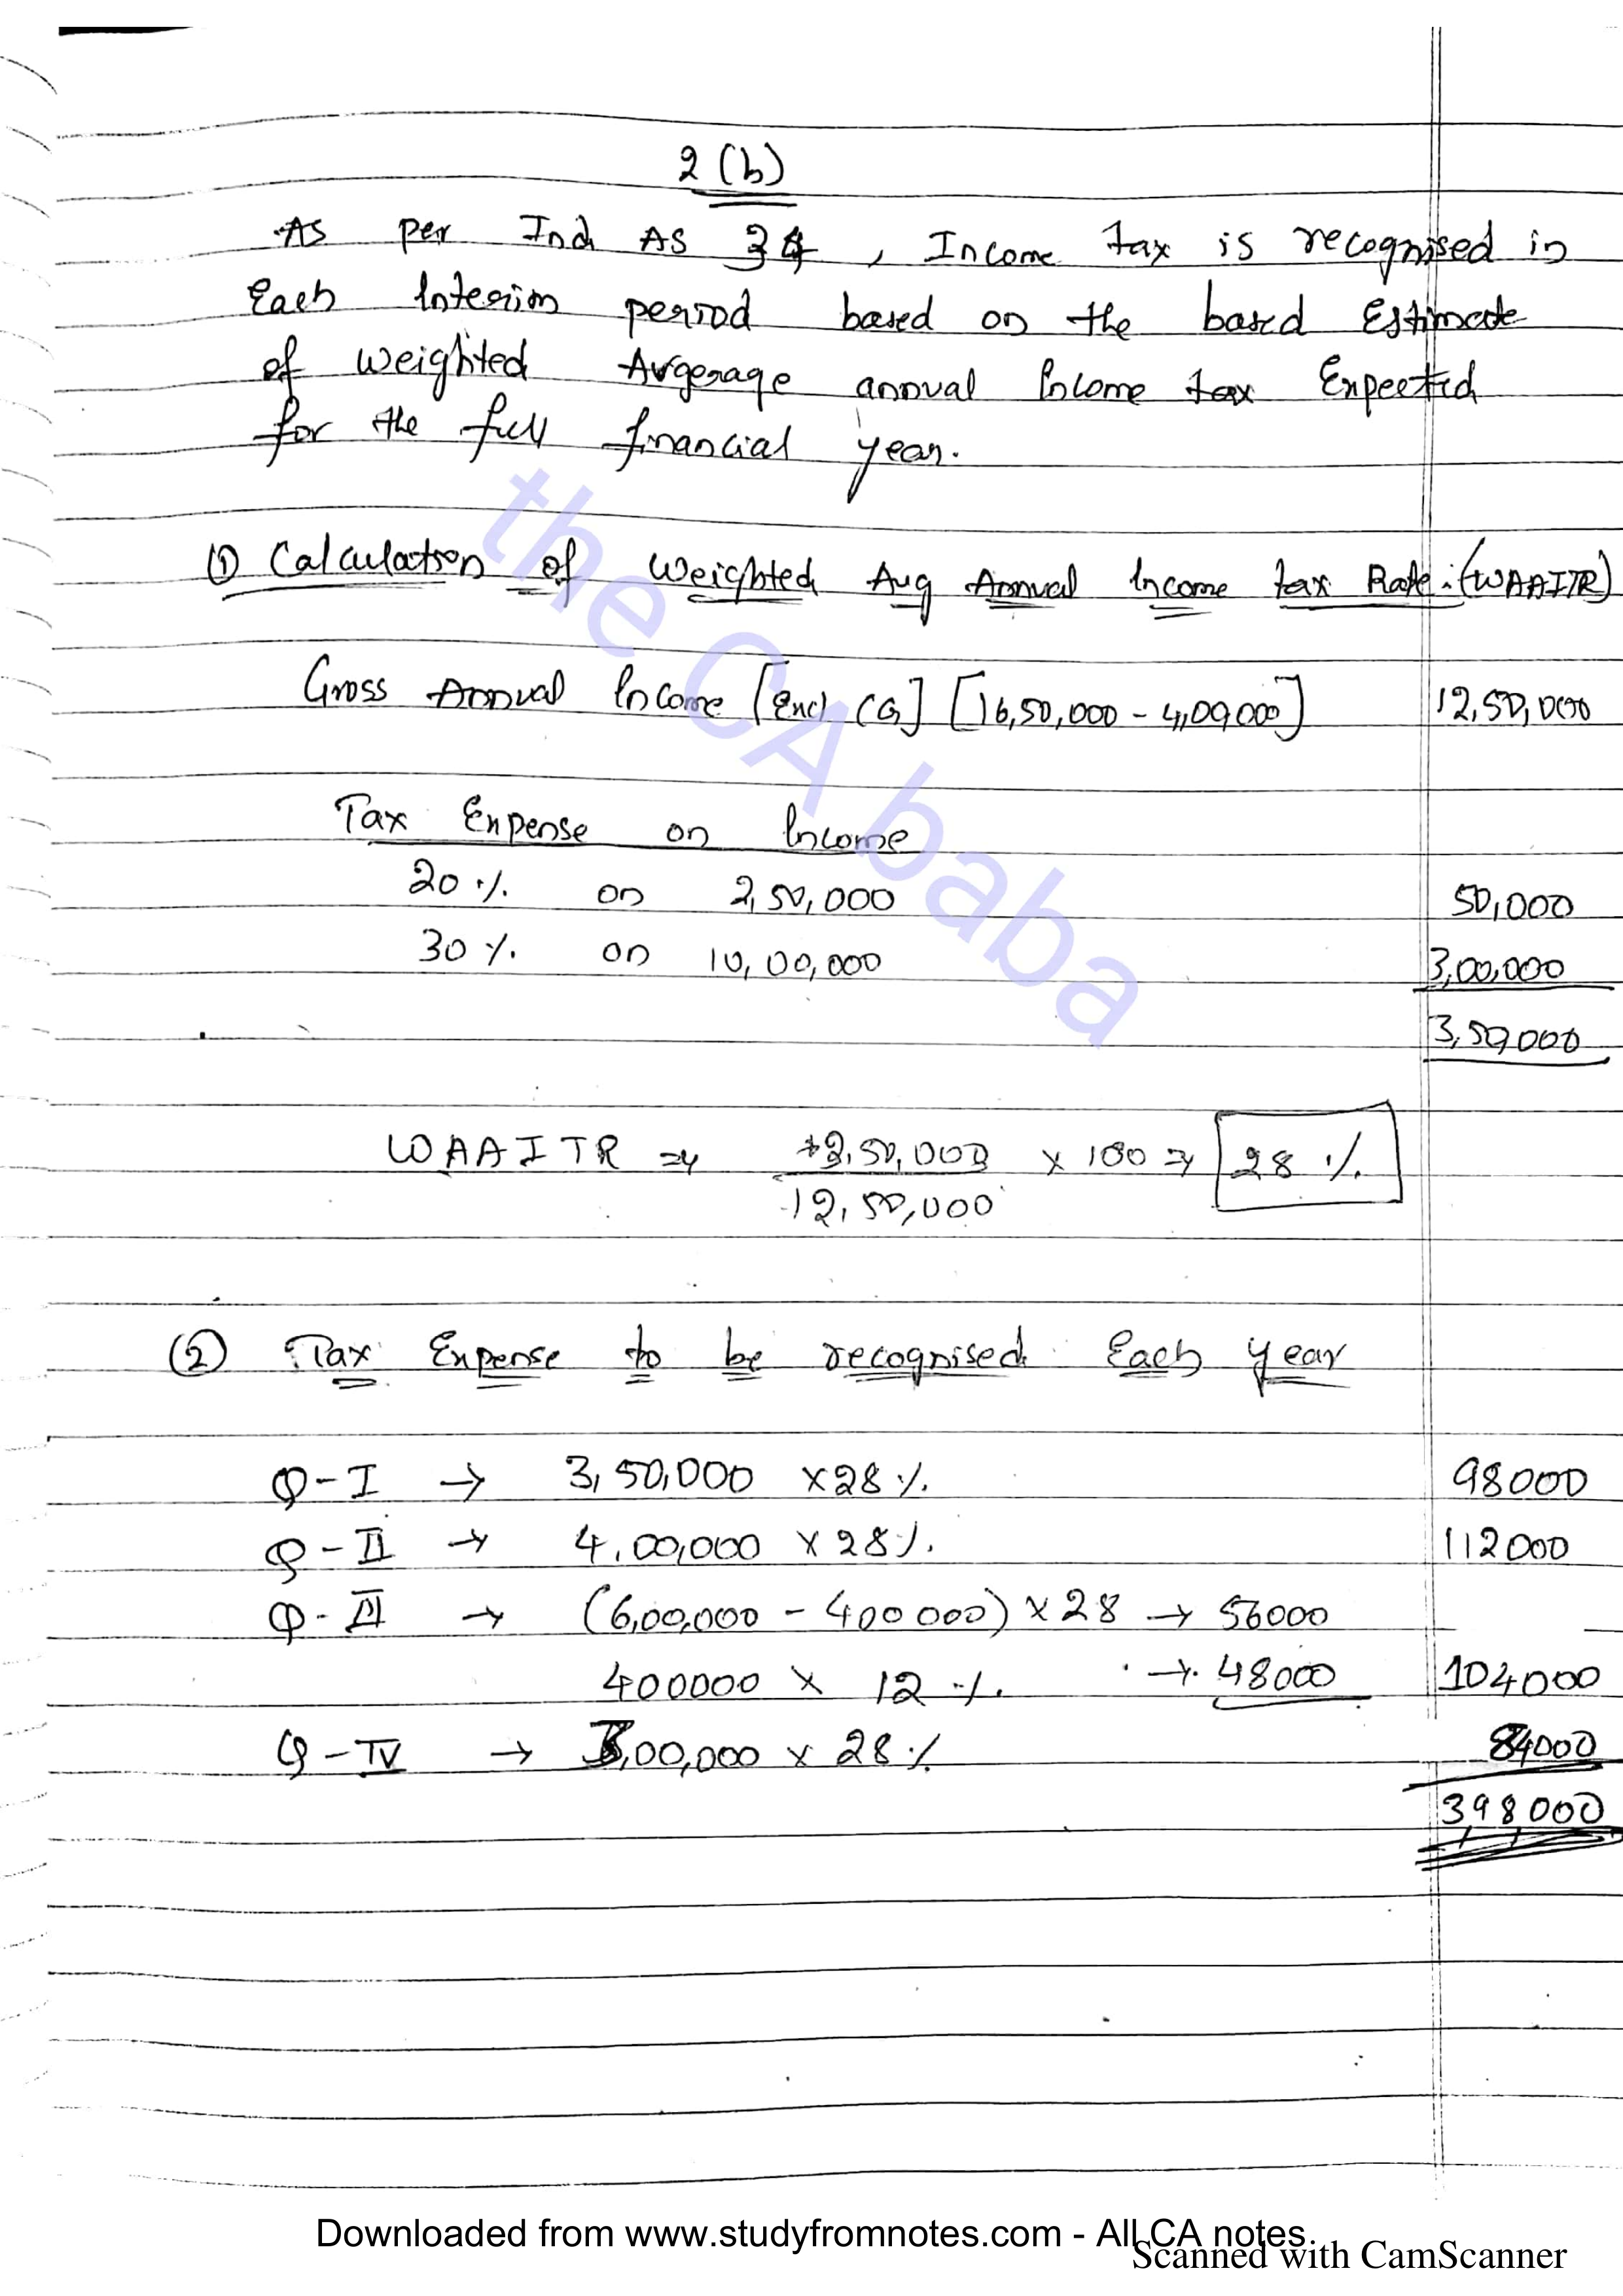 2 (b)
As per Ind AS 34, Income tax is recognised in
Each Interim period based on the based Estimate
of weighted Avgerage annual Income tax Expected
for the full financial year.
(1) Calculation of Weighted Avg Annual Income tax Rate :(WAAITR)
Gross Annual Income [Excl CG] [16,50,000 - 4,00,000] 12,50,000
Tax Expense on Income
20 % on 2,50,000 50,000
30 % on 10,00,000 3,00,000
3,50,000
WAAITR ⇒ 3,50,000 x 100 ⇒ 28 %
12,50,000
(2) Tax Expense to be recognised Each year
Q-I → 3,50,000 x 28 % 98000
Q-II → 4,00,000 x 28 % 112000
Q-III → (6,00,000 - 400000) x 28 → 56000
400000 x 12 % → 48000 104000
Q-IV → 3,00,000 x 28 % 84000
398000
the CA baba
Downloaded from www.studyfromnotes.com - All CA notes
Scanned with CamScanner